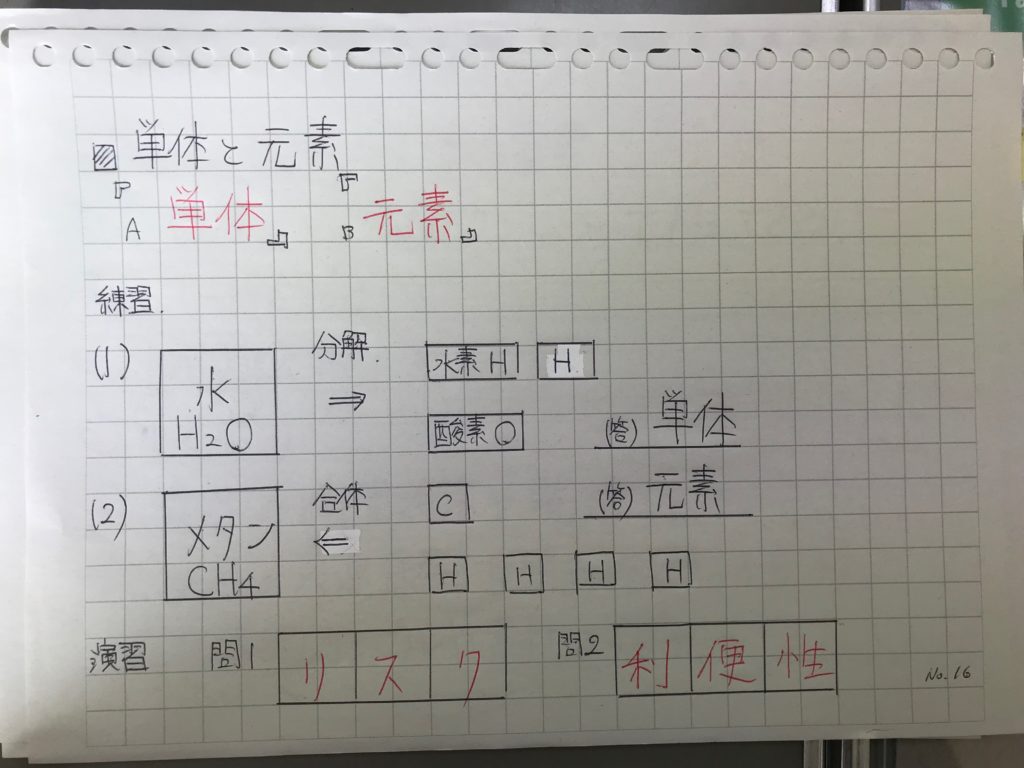 ▨ 単体と元素
A 『単体』 B 『元素』
練習.
(1) 水 H2O 分解. ⇒ 水素 H H
酸素 O (答) 単体
(2) メタン CH4 合体 ⇐ C (答) 元素
H H H H
演習 問1 リスク 問2 利便性
No.16